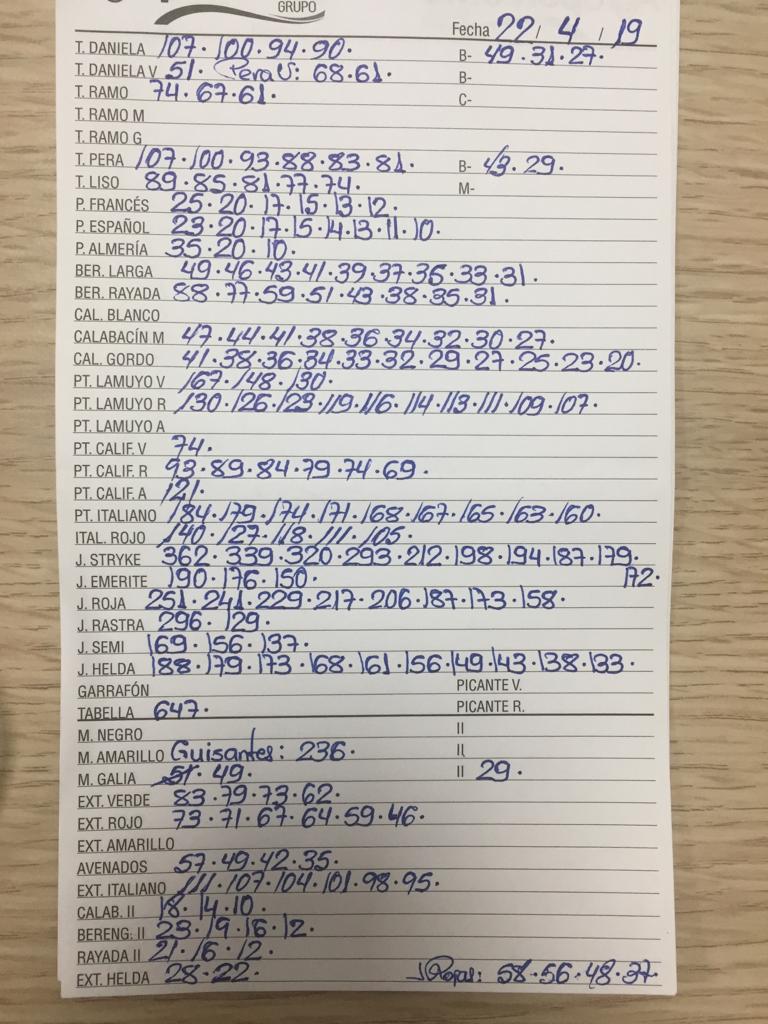 GRUPO
Fecha 22 / 4 / 19
T. DANIELA 107. 100. 94. 90. B- 49. 31. 27.
T. DANIELA V 51. Pera V: 68. 61. B-
T. RAMO 74. 67. 61. C-
T. RAMO M
T. RAMO G
T. PERA 107. 100. 93. 88. 83. 81. B- 43. 29.
T. LISO 89. 85. 81. 77. 74. M-
P. FRANCÉS 25. 20. 17. 15. 13. 12.
P. ESPAÑOL 23. 20. 17. 15. 14. 13. 11. 10.
P. ALMERÍA 35. 20. 10.
BER. LARGA 49. 46. 43. 41. 39. 37. 35. 33. 31.
BER. RAYADA 88. 77. 59. 51. 43. 38. 35. 31.
CAL. BLANCO
CALABACÍN M 47. 44. 41. 38. 36. 34. 32. 30. 27.
CAL. GORDO 41. 38. 36. 34. 33. 32. 29. 27. 25. 23. 20.
PT. LAMUYO V 167. 148. 130.
PT. LAMUYO R 130. 126. 123. 119. 116. 114. 113. 111. 109. 107.
PT. LAMUYO A
PT. CALIF. V 74.
PT. CALIF. R 93. 89. 84. 79. 74. 69.
PT. CALIF. A 121.
PT. ITALIANO 184. 179. 174. 171. 168. 167. 165. 163. 160.
ITAL. ROJO 140. 127. 118. 111. 105.
J. STRYKE 362. 339. 320. 293. 212. 198. 194. 187. 179.
J. EMERITE 190. 176. 150. 172.
J. ROJA 251. 241. 229. 217. 206. 187. 173. 158.
J. RASTRA 296. 129.
J. SEMI 169. 156. 137.
J. HELDA 188. 179. 173. 168. 161. 156. 149. 143. 138. 133.
GARRAFÓN PICANTE V.
TABELLA 647. PICANTE R.
M. NEGRO II
M. AMARILLO Guisantes: 236. II
M. GALIA 51. 49. II 29.
EXT. VERDE 83. 79. 73. 62.
EXT. ROJO 73. 71. 67. 64. 59. 46.
EXT. AMARILLO
AVENADOS 57. 49. 42. 35.
EXT. ITALIANO 111. 107. 104. 101. 98. 95.
CALAB. II 18. 14. 10.
BERENG. II 23. 19. 16. 12.
RAYADA II 21. 16. 12.
EXT. HELDA 28. 22. Rojas: 58. 56. 48. 37.